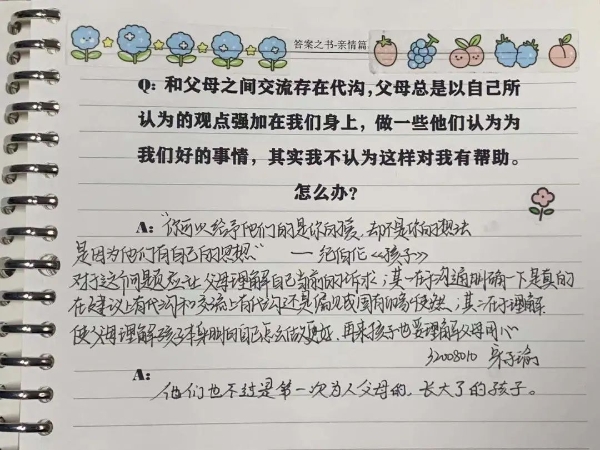 答案之书-亲情篇
Q: 和父母之间交流存在代沟，父母总是以自己所
认为的观点强加在我们身上，做一些他们认为为
我们好的事情，其实我不认为这样对我有帮助。
怎么办？
A: "你可以给予他们的是你的爱，却不是你的想法
是因为他们有自己的思想" —纪伯伦《孩子》
对于这个问题应让父母理解自己当前的诉求；其一在于沟通明确一下是真的
在建议上有代沟和交流上有代沟还是偏见或固有的 使然；其二在于理解
使父母理解孩子 的自己怎么做更好，再来孩子也要理解父母用心
32008010 子瑜
A:
他们也不过是第一次为人父母的，长大了的孩子。